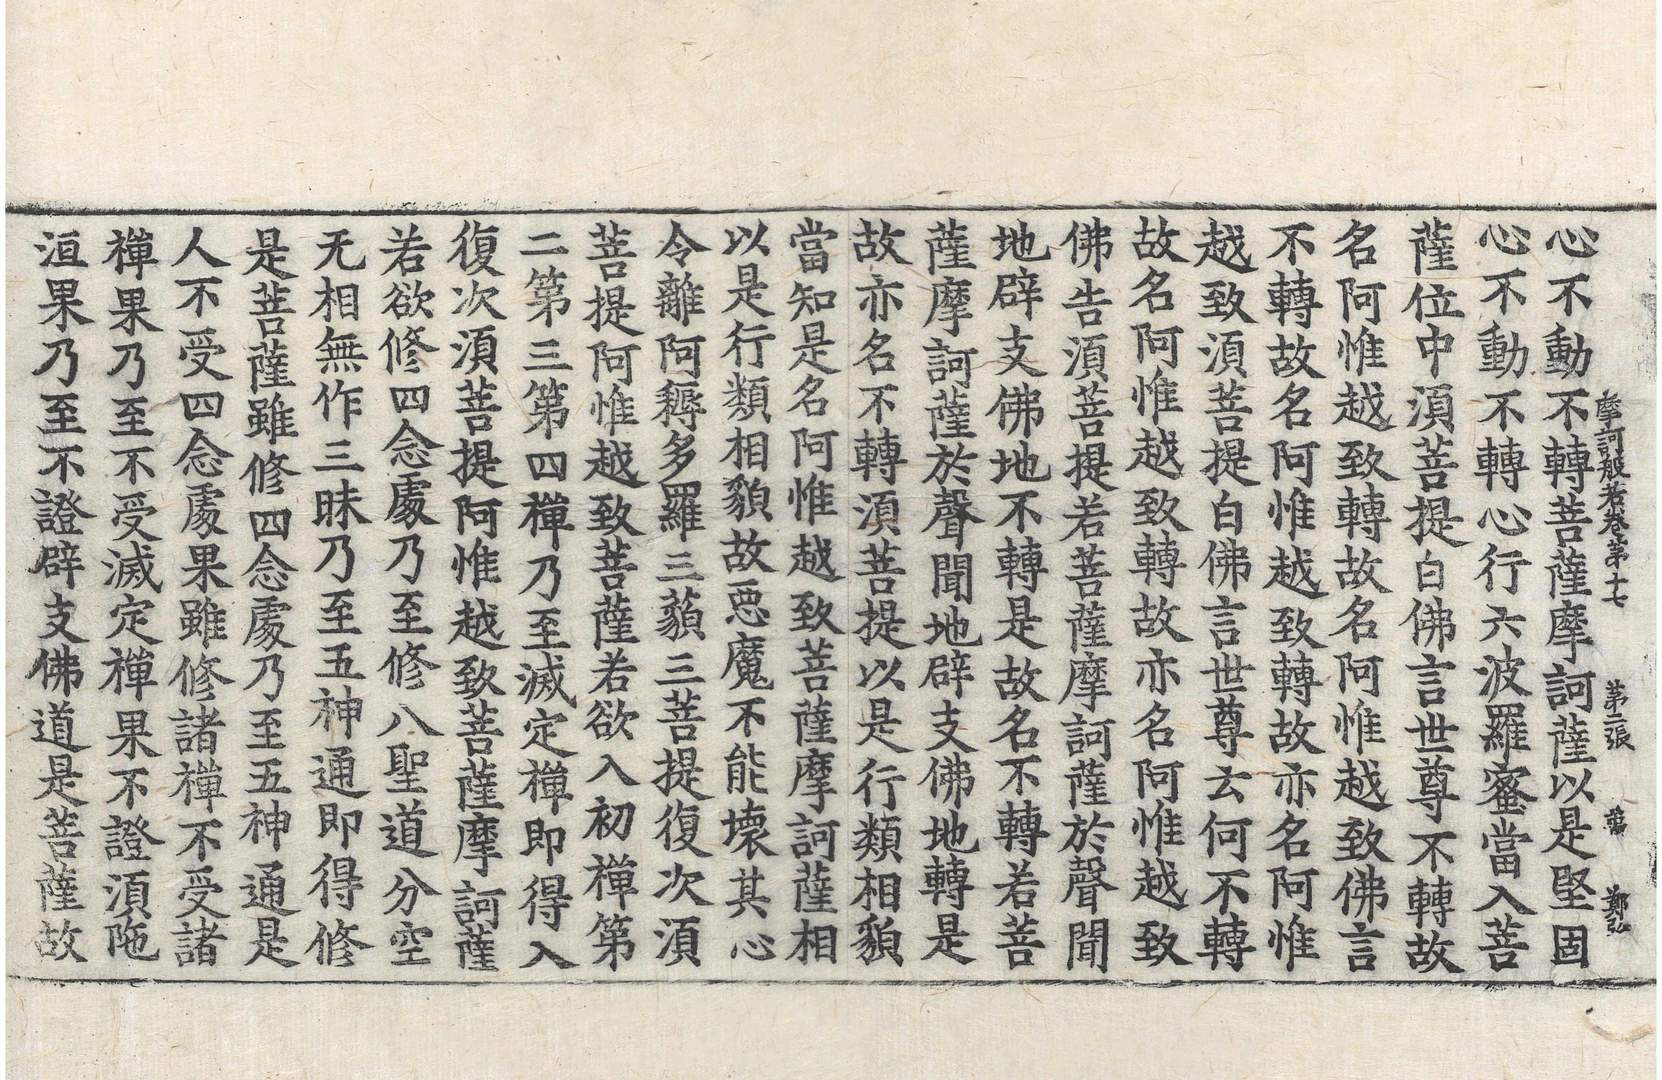 摩訶般若卷第十七 第二張 鄭弘
心不動不轉菩薩摩訶薩以是堅固
心不動不轉心行六波羅蜜當入菩
薩位中湏菩提白佛言世尊不轉故
名阿惟越致轉故名阿惟越致佛言
不轉故名阿惟越致轉故亦名阿惟
越致湏菩提白佛言世尊云何不轉
故名阿惟越致轉故亦名阿惟越致
佛告湏菩提若菩薩摩訶薩於聲聞
地辟支佛地不轉是故名不轉若菩
薩摩訶薩於聲聞地辟支佛地轉是
故亦名不轉湏菩提以是行類相貌
當知是名阿惟越致菩薩摩訶薩相
以是行類相貌故惡魔不能壞其心
令離阿耨多羅三藐三菩提復次湏
菩提阿惟越致菩薩若欲入初禪第
二第三第四禪乃至滅定禪即得入
復次湏菩提阿惟越致菩薩摩訶薩
若欲修四念處乃至修八聖道分空
无相無作三昧乃至五神通即得修
是菩薩雖修四念處乃至五神通是
人不受四念處果雖修諸禪不受諸
禪果乃至不受滅定禪果不證湏陁
洹果乃至不證辟支佛道是菩薩故